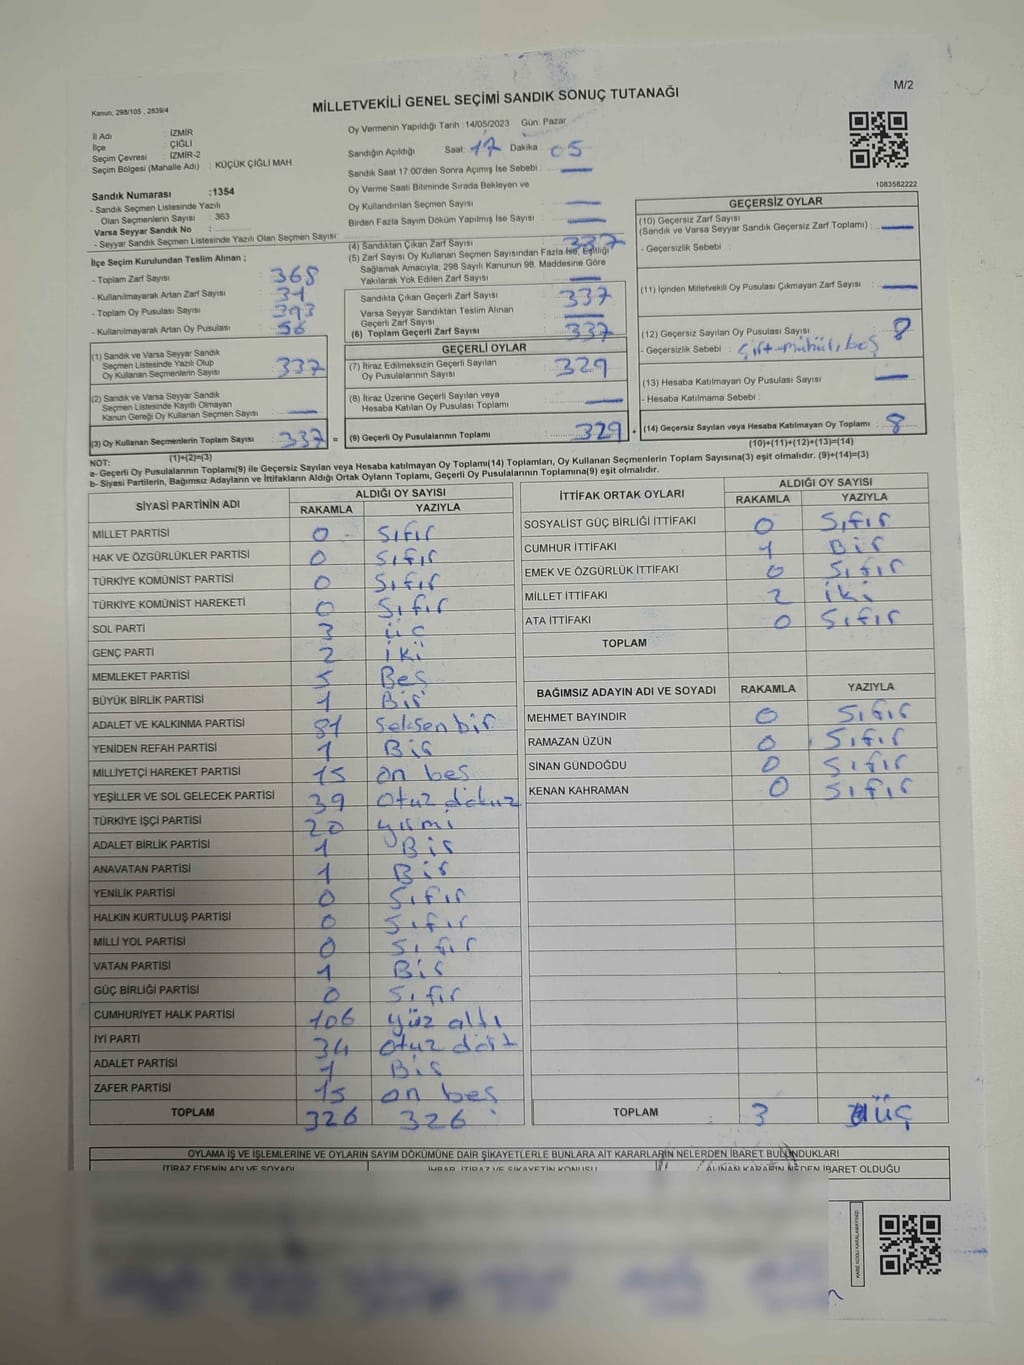 Kanun; 298/105 , 2839/4
MİLLETVEKİLİ GENEL SEÇİMİ SANDIK SONUÇ TUTANAĞI
M/2
İl Adı : İZMİR
İlçe : ÇİĞLİ
Seçim Çevresi : İZMİR-2
Seçim Bölgesi (Mahalle Adı) : KÜÇÜK ÇİĞLİ MAH.
Sandık Numarası :1354
- Sandık Seçmen Listesinde Yazılı
Olan Seçmenlerin Sayısı : 363
Varsa Seyyar Sandık No :
- Seyyar Sandık Seçmen Listesinde Yazılı Olan Seçmen Sayısı:
İlçe Seçim Kurulundan Teslim Alınan ;
- Toplam Zarf Sayısı 368
- Kullanılmayarak Artan Zarf Sayısı 31
- Toplam Oy Pusulası Sayısı 393
- Kullanılmayarak Artan Oy Pusulası 56
(1) Sandık ve Varsa Seyyar Sandık
Seçmen Listesinde Yazılı Olup
Oy Kullanan Seçmenlerin Sayısı 337
(2) Sandık ve Varsa Seyyar Sandık
Seçmen Listesinde Kayıtlı Olmayan
Kanun Gereği Oy Kullanan Seçmen Sayısı —
(3) Oy Kullanan Seçmenlerin Toplam Sayısı 337 =
(1)+(2)=(3)
Oy Vermenin Yapıldığı Tarih :14/05/2023 Gün: Pazar
Sandığın Açıldığı Saat: 17 Dakika : 05
Sandık Saat 17.00'den Sonra Açımış İse Sebebi : —
Oy Verme Saati Bitiminde Sırada Bekleyen ve
Oy Kullandırılan Seçmen Sayısı —
Birden Fazla Sayım Döküm Yapılmış İse Sayısı —
(4) Sandıktan Çıkan Zarf Sayısı 337
(5) Zarf Sayısı Oy Kullanan Seçmen Sayısından Fazla İse, Eşitliği
Sağlamak Amacıyla, 298 Sayılı Kanunun 98. Maddesine Göre
Yakılarak Yok Edilen Zarf Sayısı —
Sandıkta Çıkan Geçerli Zarf Sayısı 337
Varsa Seyyar Sandıktan Teslim Alınan
Geçerli Zarf Sayısı —
(6) Toplam Geçerli Zarf Sayısı 337
GEÇERLİ OYLAR
(7) İtiraz Edilmeksizin Geçerli Sayılan
Oy Pusulalarının Sayısı 329
(8) İtiraz Üzerine Geçerli Sayılan veya
Hesaba Katılan Oy Pusulası Toplamı —
(9) Geçerli Oy Pusulalarının Toplamı 329 +
1083582222
GEÇERSİZ OYLAR
(10) Geçersiz Zarf Sayısı
(Sandık ve Varsa Seyyar Sandık Geçersiz Zarf Toplamı) : —
- Geçersizlik Sebebi :
(11) İçinden Milletvekili Oy Pusulası Çıkmayan Zarf Sayısı —
(12) Geçersiz Sayılan Oy Pusulası Sayısı 8
- Geçersizlik Sebebi : çift mühür, boş
(13) Hesaba Katılmayan Oy Pusulası Sayısı —
- Hesaba Katılmama Sebebi :
(14) Geçersiz Sayılan veya Hesaba Katılmayan Oy Toplamı 8
(10)+(11)+(12)+(13)=(14)
NOT:
a- Geçerli Oy Pusulalarının Toplamı(9) ile Geçersiz Sayılan veya Hesaba katılmayan Oy Toplamı(14) Toplamları, Oy Kullanan Seçmenlerin Toplam Sayısına(3) eşit olmalıdır. (9)+(14)=(3)
b- Siyasi Partilerin, Bağımsız Adayların ve İttifakların Aldığı Ortak Oyların Toplamı, Geçerli Oy Pusulalarının Toplamına(9) eşit olmalıdır.
SİYASİ PARTİNİN ADI ALDIĞI OY SAYISI
RAKAMLA YAZIYLA
MİLLET PARTİSİ 0 Sıfır
HAK VE ÖZGÜRLÜKLER PARTİSİ 0 Sıfır
TÜRKİYE KOMÜNİST PARTİSİ 0 Sıfır
TÜRKİYE KOMÜNİST HAREKETİ 0 Sıfır
SOL PARTİ 3 üç
GENÇ PARTİ 2 iki
MEMLEKET PARTİSİ 5 Beş
BÜYÜK BİRLİK PARTİSİ 1 Bir
ADALET VE KALKINMA PARTİSİ 81 Seksen bir
YENİDEN REFAH PARTİSİ 1 Bir
MİLLİYETÇİ HAREKET PARTİSİ 15 on beş
YEŞİLLER VE SOL GELECEK PARTİSİ 39 otuz dokuz
TÜRKİYE İŞÇİ PARTİSİ 20 yirmi
ADALET BİRLİK PARTİSİ 1 Bir
ANAVATAN PARTİSİ 1 Bir
YENİLİK PARTİSİ 0 Sıfır
HALKIN KURTULUŞ PARTİSİ 0 Sıfır
MİLLİ YOL PARTİSİ 0 Sıfır
VATAN PARTİSİ 1 Bir
GÜÇ BİRLİĞİ PARTİSİ 0 Sıfır
CUMHURİYET HALK PARTİSİ 106 yüz altı
İYİ PARTİ 34 otuz dört
ADALET PARTİSİ 1 Bir
ZAFER PARTİSİ 15 on beş
TOPLAM 326 326
İTTİFAK ORTAK OYLARI ALDIĞI OY SAYISI
RAKAMLA YAZIYLA
SOSYALİST GÜÇ BİRLİĞİ İTTİFAKI 0 Sıfır
CUMHUR İTTİFAKI 1 Bir
EMEK VE ÖZGÜRLÜK İTTİFAKI 0 Sıfır
MİLLET İTTİFAKI 2 iki
ATA İTTİFAKI 0 Sıfır
TOPLAM
BAĞIMSIZ ADAYIN ADI VE SOYADI RAKAMLA YAZIYLA
MEHMET BAYINDIR 0 Sıfır
RAMAZAN ÜZÜN 0 Sıfır
SİNAN GÜNDOĞDU 0 Sıfır
KENAN KAHRAMAN 0 Sıfır
TOPLAM 3 üç
OYLAMA İŞ VE İŞLEMLERİNE VE OYLARIN SAYIM DÖKÜMÜNE DAİR ŞİKAYETLERLE BUNLARA AİT KARARLARIN NELERDEN İBARET BULUNDUKLARI
İTİRAZ EDENİN ADI VE SOYADI İHBAR, İTİRAZ VE ŞİKAYETİN KONUSU ALINAN KARARIN NEDEN İBARET OLDUĞU